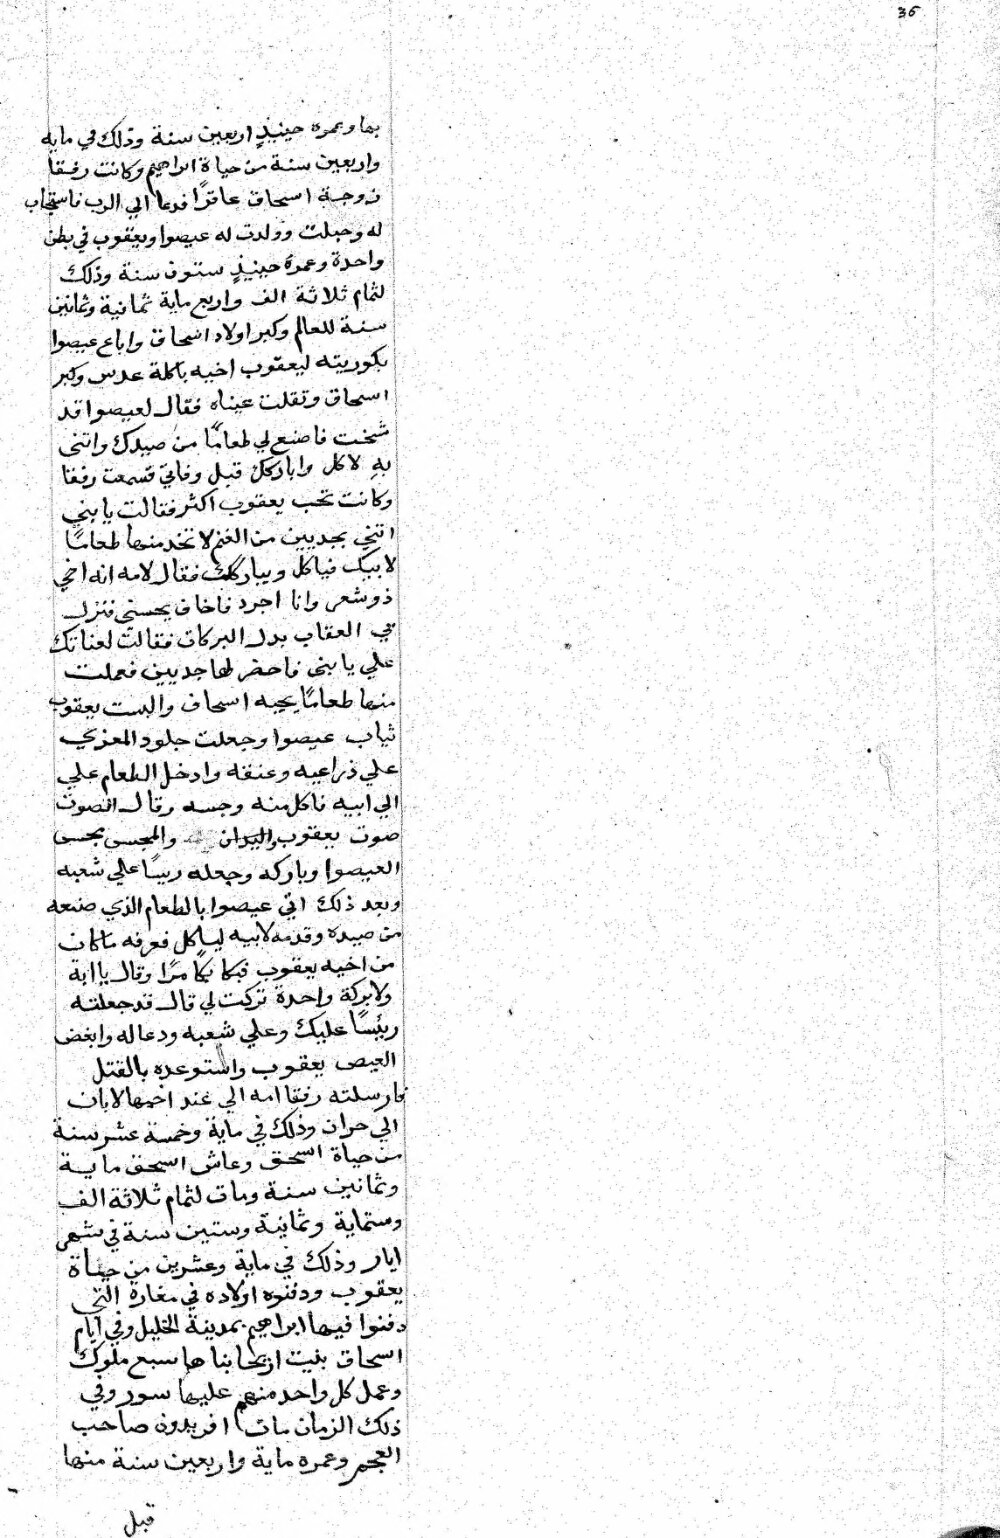 36
بها وعمره حينيذٍ اربعين سنة وذلك في مايه
واربعين سنة من حياة ابراهيم وكانت رفقا
زوجة اسحاق عاقرًا فدعا الي الرب فاستجاب
له وحبلت وولدت له عيصوا ويعقوب في بطن
واحدة وعمره حينيذٍ ستون سنة وذلك
لتمام ثلاثة الف واربع ماية ثمانية وثمانين
سنة للعالم وكبر اولاد اسحاق واباع عيصوا
بكوريته ليعقوب اخيه باكلة عدس وكبر
اسحاق وتقلت عيناه فقال لعيصوا قد
شخت فاصنع لي طعامًا من صيدك واتنى
بهِ لاكل واباركك قبل وفاتي فسمعت رفقا
وكانت تحب يعقوب اكثر فقالت يا بني
اتني بجديين من الغنم لاتخد منها طعامًا
لابيك فياكل ويباركك فقال لامه انه اخي
ذو شعر وانا اجرد فاخاف يجسني فتنزل
بي العقاب بدل البركات فقالت لعناتك
علي يا بنى فاحضر لها جديين فعملت
منها طعامًا يحبه اسحاف والبست يعقوب
ثياب عيصوا وجعلت جلود المعزي
علي ذراعيه وعنقه وادخل الطعام علي
الي ابيه فاكل منه وجسه وقال الصوت
صوت يعقوب واليدان والمجسى مجسى
العيصوا وباركه وجعله ريسًا علي شعبه
وبعد ذلك اتي عيصوا بالطعام الذي صنعه
من صيده وقدمه لابيه لياكل فعرفه ماكان
من اخيه يعقوب فبكا بكًا مرًا وقال يا ابة
ولا بركة واحدة تركت لي قال قد جعلته
ريئسًا عليك وعلي شعبه ودعا له وابغض
العيص يعقوب واستوعده بالقتل
فارسلته رفقا امه الي عند اخيها لابان
الي حران وذلك في ماية وخمسة عشر سنة
من حياة اسحق وعاش اسحق ماية
وثمانين سنة ومات لتمام ثلاثة الف
وستماية وثمانية وستين سنة في شهر
ايار وذلك في ماية وعشرين من حياة
يعقوب ودفنوه اولاده في مغارة التي
دفنوا فيها ابراهيم بمدينة الخليل وفي ايام
اسحاق بنيت اريحا بناها سبع ملوك
وعمل كل واحد منهم عليها سور وفي
ذلك الزمان مات افريدون صاحب
العجم وعمره ماية واربعين سنة منها
قبل